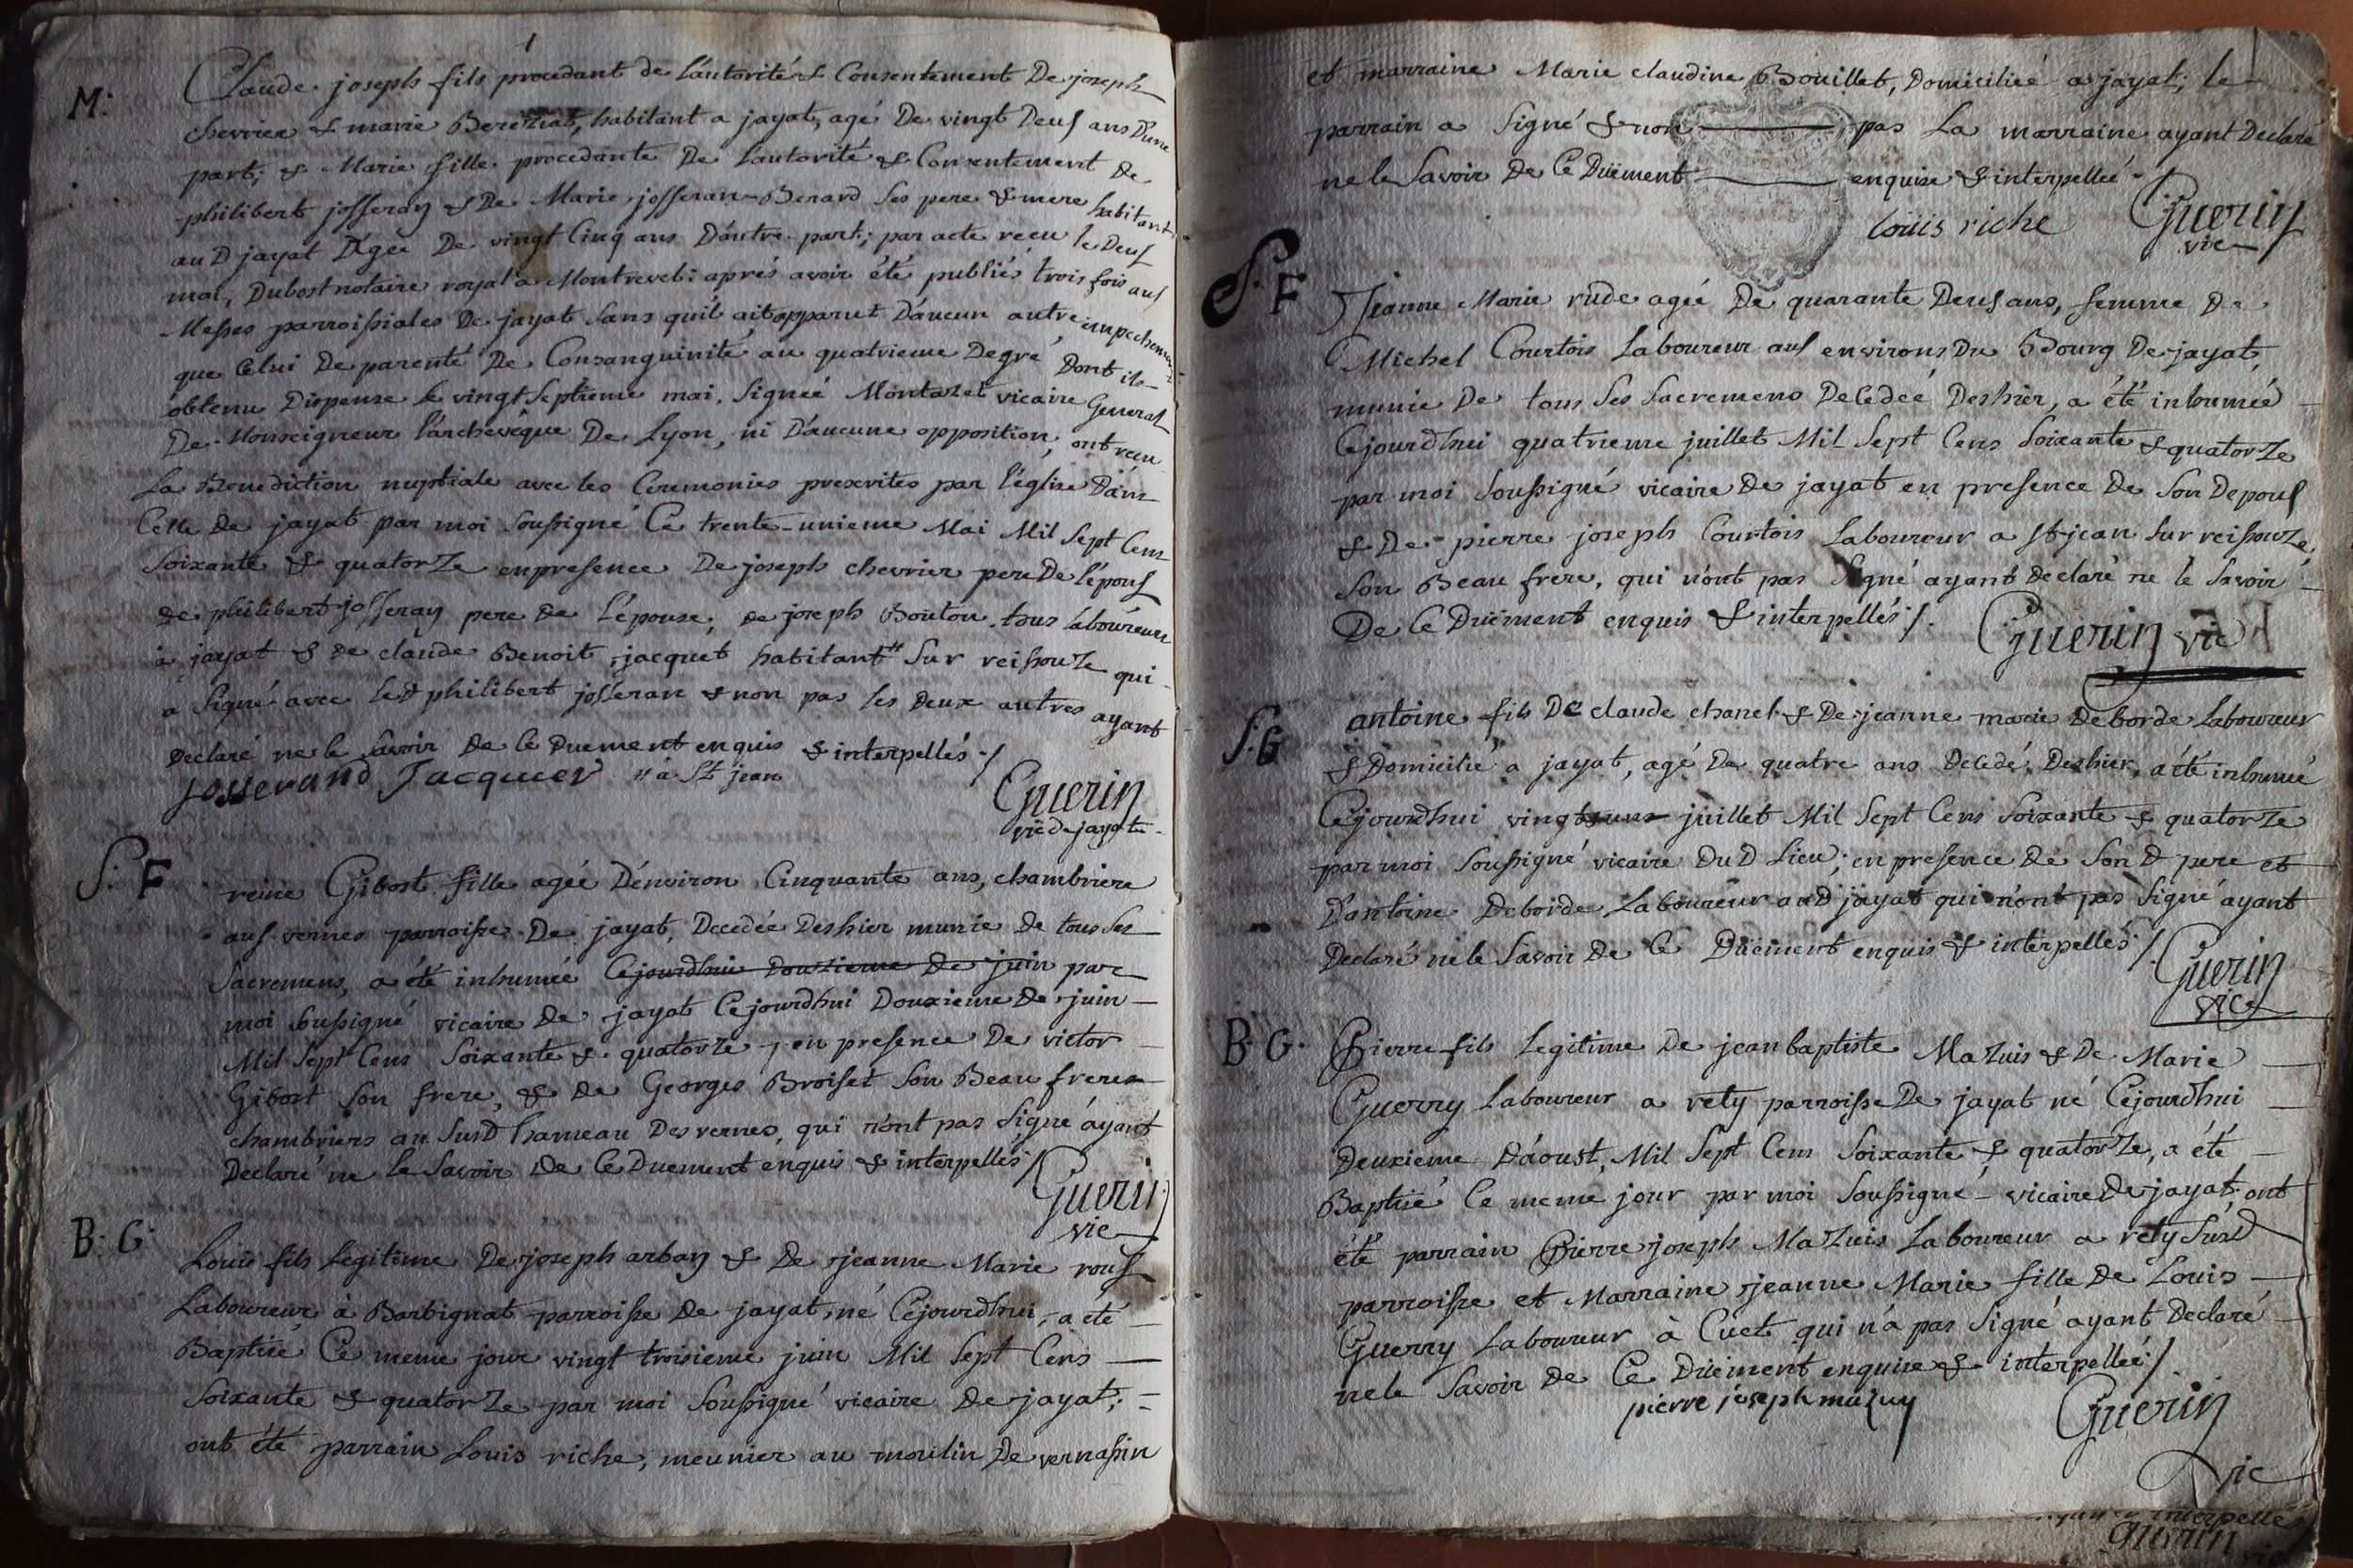 M: Claude joseph fils procedant de l'autorité & Consentement De joseph
chevrier & marie Bereziat, habitant a jayat, agé De vingt Deus ans D'une
part; & Marie fille procedante De l'autorité & Consentement de
philibert josseran & De Marie josseran-Benard Ses pere & mere habitant
au D jayat Agée De vingt Cinq ans D'autre part; par acte recu le Deus
mai, Dubost notaire royal à Montrevel: aprés avoir été publiés trois fois aus
Messes parroissiales De jayat Sans qu'il ait apparut D'aucun autre impechement
que Celui De parenté De Consanguinité au quatrieme Degré Dont ils
obtenu Dispense le vingt Septieme mai, Signée Montazet vicaire General
De Monseigneur l'archevêque De Lyon, ni D'aucune opposition, ont recu
La Benediction nuptiale avec les Ceremonies prescrites par l'église Dans
Celle De jayat par moi soussigné Ce trente-unieme Mai Mil Sept Cens
Soixante & quatorze en presence De joseph chevrier pere De l'épous
de philibert josseran pere de L'épouse, de joseph Bouton tous laboureurs
à jayat & de claude Benoit jacquet habitant " Sur reissouze qui
a Signé avec le D philibert josseran & non pas les Deux autres ayant
Declaré ne le Savoir De Ce Duement enquis & interpellés ./
josserand Jacquier " à St jean
Guerin
vic de jayat
S. F reine Gibost fille agée D'environ Cinquante ans, chambriere
aus vernes parroisse De jayat, Decedée Des hier munie de tous Ses
Sacremens, a été inhumée Cejourdhui Douzieme De juin par
moi soussigné vicaire De jayat Cejourdhui Douxieme De juin
Mil Sept Cens Soixante & quatorze, en presence De victor
Gibost Son frere, & de Georges Broiset Son Beau frere
chambriers au SusD hameau Des vernes, qui n'ont pas Signé ayant
Declaré ne le Savoir De Ce Duement enquis & interpellés /
Guerin
vic
B: G: Louis fils Legitime De joseph arban & De jeanne Marie rous
Laboureur à Barbignat parroisse De jayat, né Cejourdhui, a été
Baptisé Ce meme jour vingt troisieme juin Mil Sept Cens
Soixante & quatorze par moi Soussigné vicaire De jayat;
ont été parrain Louis riche, meunier au moulin De vernassin
et marraine Marie claudine Bouillet, Domiciliée a jayat; le
parrain a Signé & non pas La marraine ayant Declaré
ne le Savoir De Ce Duement enquise & interpellée ./
Louis riche Guerin
vic
S. F Jeanne Marie rude agée De quarante Deus ans, femme De
Michel Courtois Laboureur aus environs Du Bourg De jayat,
munie De tous Ses Sacremens Decedée Des hier, a été inhumée
Cejourdhui quatrieme juillet Mil Sept Cens Soixante & quatorze
par moi Soussigné vicaire De jayat en presence De Son D epous
& De pierre joseph Courtois Laboureur a St jean Sur reissouze,
Son Beau frere, qui n'ont pas Signé ayant Declaré ne le Savoir
De Ce Duëment enquis & interpellés /. Guerin vic
S. G antoine fils De claude chanel & De jeanne marie Deborde Laboureur
& Domicilié a jayat, agé De quatre ans Decedé Des hier, a été inhumé
Cejourdhui vingt juillet Mil Sept Cens Soixante & quatorze
par moi Soussigné vicaire Du D Lieu; en presence De Son D pere et
D'antoine Deborde Laboureur au D jayat qui n'ont pas Signé ayant
Declaré ne le Savoir De Ce Duëment enquis & interpellés /.
Guerin
vic
B. G. Pierre fils Legitime De jean baptiste Mazuis & De Marie
Guerry Laboureur a rety parroisse De jayat né Cejourdhui
Deuxieme D'aoust, Mil Sept Cens Soixante & quatorze, a été
Baptisé le meme jour par moi Soussigné vicaire De jayat ont
été parrain Pierre joseph Mazuis Laboureur a rety SusD
parroisse et Marraine jeanne Marie fille de Louis
Guerry Laboureur à Cuet qui n'a pas Signé ayant Declaré
ne le Savoir De Ce Duement enquise & interpellée /.
pierre joseph mazuy Guerin
vic
interpellé
Guerin